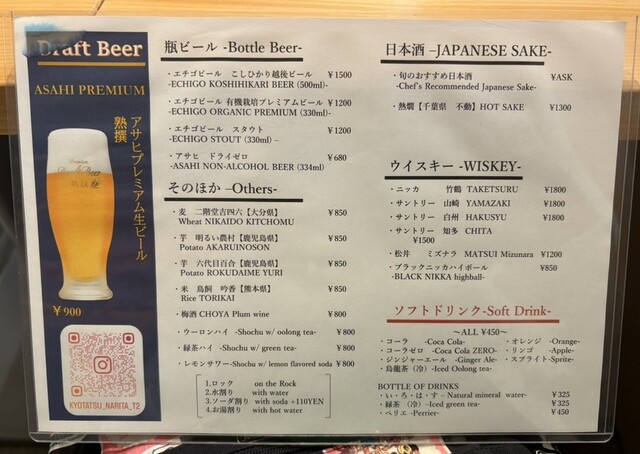 Draft Beer
ASAHI PREMIUM
アサヒプレミアム生ビール
熟撰
¥900
KYOTATSU_NARITA_T2
瓶ビール -Bottle Beer-
・エチゴビール こしひかり越後ビール ¥1500
-ECHIGO KOSHIHIKARI BEER (500ml)-
・エチゴビール 有機栽培プレミアムビール ¥1200
-ECHIGO ORGANIC PREMIUM (330ml)-
・エチゴビール スタウト ¥1200
-ECHIGO STOUT (330ml) –
・アサヒ ドライゼロ ¥680
-ASAHI NON-ALCOHOL BEER (334ml)
そのほか –Others-
・麦 二階堂吉四六【大分県】 ¥850
Wheat NIKAIDO KITCHOMU
・芋 明るい農村【鹿児島県】 ¥850
Potato AKARUINOSON
・芋 六代目百合【鹿児島県】 ¥850
Potato ROKUDAIME YURI
・米 鳥飼 吟香【熊本県】 ¥850
Rice TORIKAI
・梅酒 CHOYA Plum wine ¥800
・ウーロンハイ -Shochu w/ oolong tea- ¥800
・緑茶ハイ -Shochu w/ green tea- ¥800
・レモンサワー-Shochu w/ lemon flavored soda ¥800
1.ロック on the Rock
2.水割り with water
3.ソーダ割り with soda +110YEN
4.お湯割り with hot water
日本酒 –JAPANESE SAKE-
・旬のおすすめ日本酒 ¥ASK
-Chef's Recommended Japanese Sake-
・熱燗【千葉県 不動】HOT SAKE ¥1300
ウイスキー -WISKEY-
・ニッカ 竹鶴 TAKETSURU ¥1800
・サントリー 山崎 YAMAZAKI ¥1800
・サントリー 白州 HAKUSYU ¥1800
・サントリー 知多 CHITA
¥1500
・松井 ミズナラ MATSUI Mizunara ¥1200
・ブラックニッカハイボール ¥850
-BLACK NIKKA highball-
ソフトドリンク-Soft Drink-
〜ALL ¥450〜
・コーラ -Coca Cola- ・オレンジ -Orange-
・コーラゼロ -Coca Cola ZERO- ・リンゴ -Apple-
・ジンジャーエール -Ginger Ale- ・スプライト-Sprite-
・烏龍茶（冷）-Iced Oolong tea-
BOTTLE OF DRINKS
・い・ろ・は・す – Natural mineral water- ¥325
・緑茶（冷）-Iced green tea- ¥325
・ペリエ -Perrier- ¥450